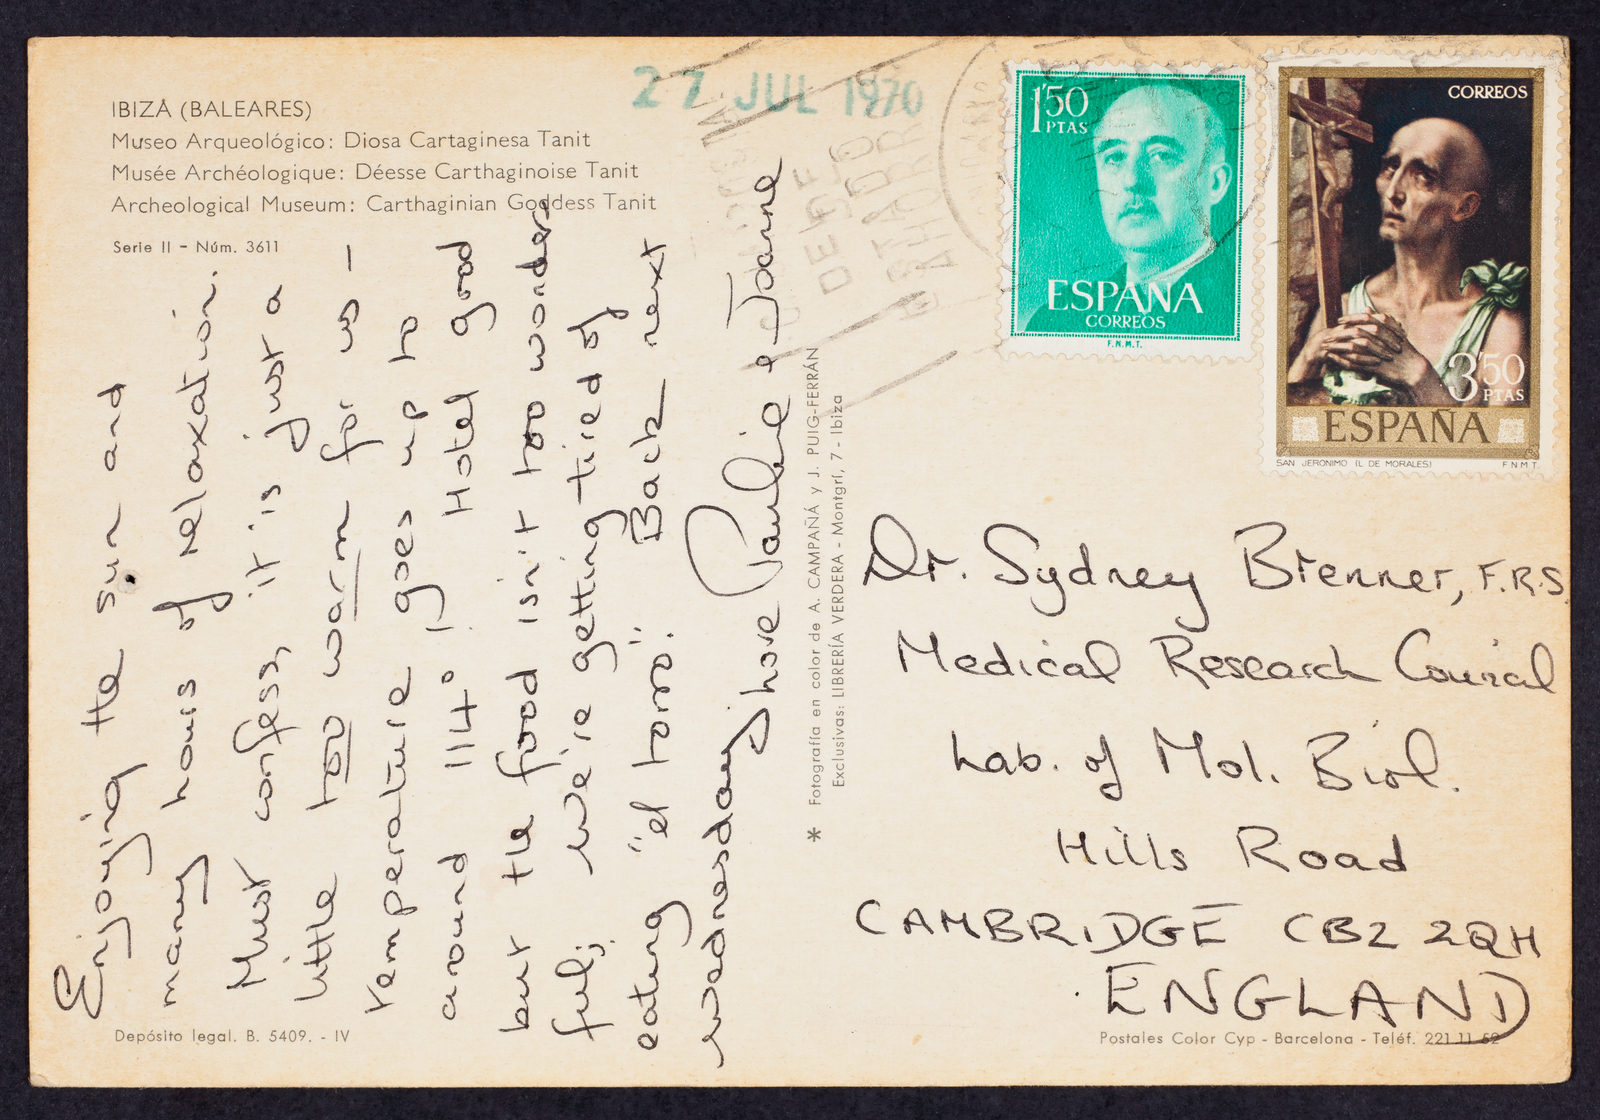 IBIZA (BALEARES)
Museo Arqueológico: Diosa Cartaginesa Tanit
Musée Archéologique: Déesse Carthaginoise Tanit
Archeological Museum: Carthaginian Goddess Tanit
Serie II - Núm. 3611
27 JUL 1970
1'50
PTAS
ESPAÑA
CORREOS
F.N.M.T.
CORREOS
3'50
PTAS
ESPAÑA
SAN JERONIMO (L. DE MORALES)
F N M T
Enjoying the sun and
many hours of relaxation.
Must confess, it is just a
little too warm for us –
temperature goes up to
around 114° ! Hotel good
but the food isn't too wonder
ful; we're getting tired of
eating "el toro". Back next
wednesday, love Paulie & Joanne
* Fotografía en color de A. CAMPAÑÁ y J. PUIG-FERRÁN
Exclusivas: LIBRERÍA VERDERA - Montgrí, 7 - Ibiza
Dr. Sydney Brenner, F.R.S.
Medical Research Council
Lab. of Mol. Biol.
Hills Road
CAMBRIDGE CB2 2QH
ENGLAND
Depósito legal. B. 5409. - IV
Postales Color Cyp - Barcelona - Teléf. 221 11 62